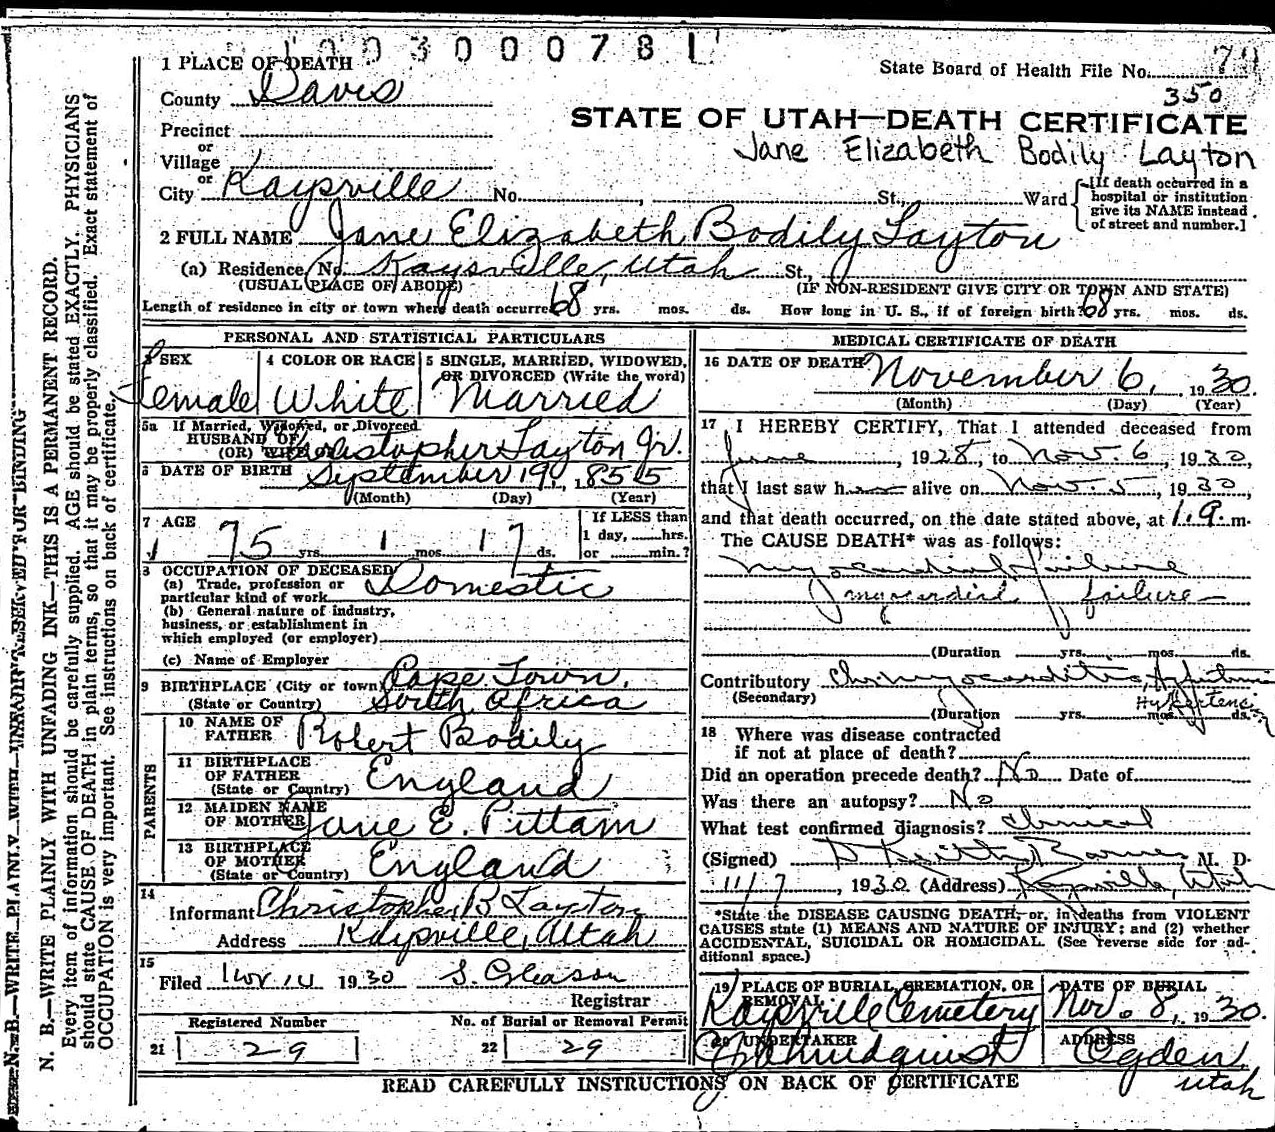 1003000781
1 PLACE OF DEATH
State Board of Health File No. 79
350
County Davis
STATE OF UTAH—DEATH CERTIFICATE
Precinct
Jane Elizabeth Bodily Layton
or
Village
or
City Kaysville No. , St., Ward
[If death occurred in a
hospital or institution
give its NAME instead
of street and number.]
2 FULL NAME Jane Elizabeth Bodily Layton
(a) Residence, No. Kaysville, Utah St.,
(USUAL PLACE OF ABODE) (IF NON-RESIDENT GIVE CITY OR TOWN AND STATE)
Length of residence in city or town where death occurred 68 yrs. mos. ds. How long in U. S., if of foreign birth? 68 yrs. mos. ds.
PERSONAL AND STATISTICAL PARTICULARS
3 SEX
Female
4 COLOR OR RACE
White
5 SINGLE, MARRIED, WIDOWED,
OR DIVORCED (Write the word)
Married
5a If Married, Widowed, or Divorced
HUSBAND OF
(OR) WIFE OF Christopher Layton Jr.
6 DATE OF BIRTH September 19, 1855
(Month) (Day) (Year)
7 AGE
75 yrs. 1 mos. 17 ds.
If LESS than
1 day, hrs.
or min.?
8 OCCUPATION OF DECEASED
(a) Trade, profession or
particular kind of work Domestic
(b) General nature of industry,
business, or establishment in
which employed (or employer)
(c) Name of Employer
9 BIRTHPLACE (City or town) Cape Town,
(State or Country) South Africa
PARENTS
10 NAME OF
FATHER Robert Bodily
11 BIRTHPLACE
OF FATHER
(State or Country) England
12 MAIDEN NAME
OF MOTHER Jane E. Pittam
13 BIRTHPLACE
OF MOTHER
(State or Country) England
14
Informant Christopher B Layton
Address Kaysville, Utah
15
Filed Nov 14 1930 S. Gleason
Registrar
Registered Number
21 29
No. of Burial or Removal Permit
22 29
MEDICAL CERTIFICATE OF DEATH
16 DATE OF DEATH November 6, 1930
(Month) (Day) (Year)
17 I HEREBY CERTIFY, That I attended deceased from
June , 1928, to Nov. 6, 1930,
that I last saw her alive on Nov. 5, 1930,
and that death occurred, on the date stated above, at m.
The CAUSE DEATH* was as follows:
myocardial failure
myocardial failure
(Duration yrs. mos. ds.
Contributory Chr. myocarditis, Hypertension
(Secondary) Hypertension
(Duration yrs. mos. ds.
18 Where was disease contracted
if not at place of death?
Did an operation precede death? No Date of
Was there an autopsy? No
What test confirmed diagnosis? Clinical
(Signed) D Keith Barnes M. D.
11/7, 1930 (Address) Kaysville, Utah
*State the DISEASE CAUSING DEATH, or, in deaths from VIOLENT
CAUSES state (1) MEANS AND NATURE OF INJURY; and (2) whether
ACCIDENTAL, SUICIDAL OR HOMICIDAL. (See reverse side for ad-
ditional space.)
19 PLACE OF BURIAL, CREMATION, OR
REMOVAL
Kaysville Cemetery
DATE OF BURIAL
Nov. 8, 1930.
20 UNDERTAKER
ADDRESS
Ogden,
Utah
READ CAREFULLY INSTRUCTIONS ON BACK OF CERTIFICATE
N. B.—WRITE PLAINLY WITH UNFADING INK—THIS IS A PERMANENT RECORD.
Every item of information should be carefully supplied. AGE should be stated EXACTLY. PHYSICIANS
should state CAUSE OF DEATH in plain terms, so that it may be properly classified. Exact statement of
OCCUPATION is very important. See instructions on back of certificate.